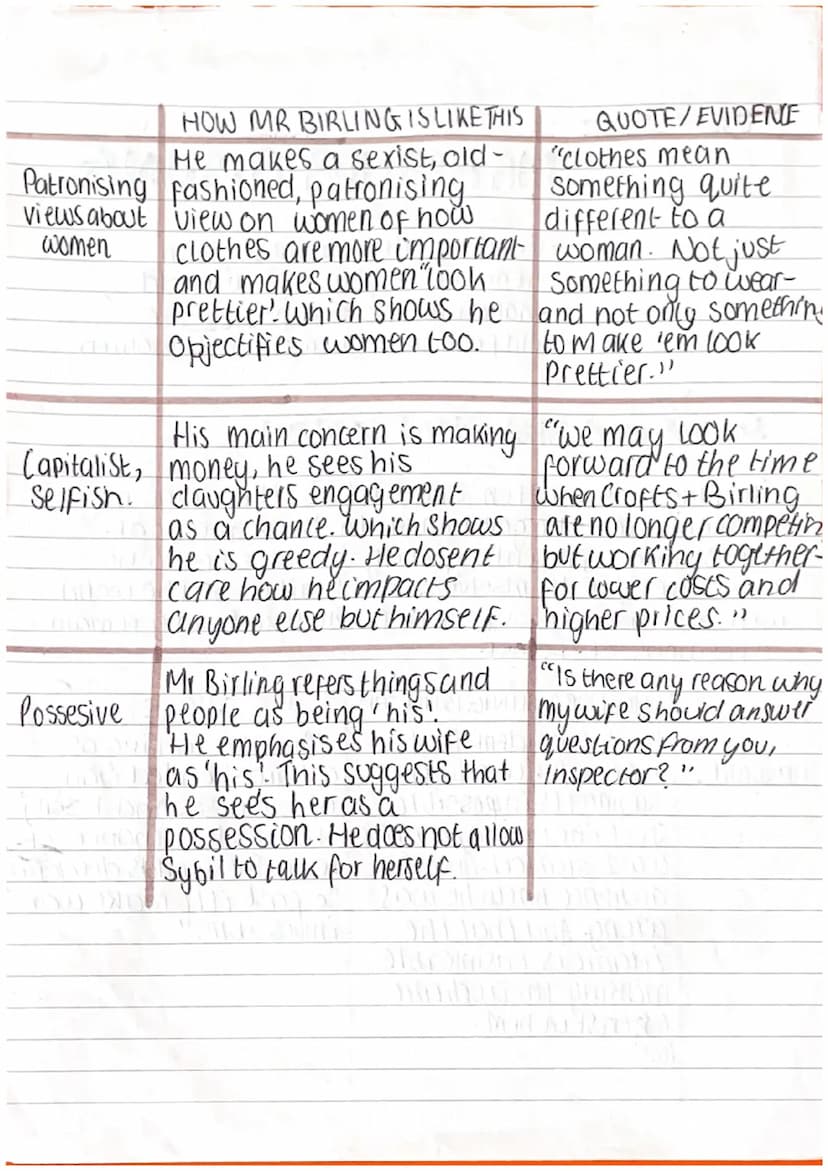 HOW MR BIRLING IS LIKE THIS
QUOTE/EVIDENCE
Patronising
views about
women
He makes a sexist, old-
fashioned, patronising
view on women of how
clothes are more important
and makes women "look
prettier'. Which shows he
Objectifies women too.
"clothes mean
something quite
different to a
woman. Not just
something to wear-
and not only somethin
to make 'em look
Prettier."
Capitalist,
Selfish.
His main concern is making
money, he sees his
daughters engagement
as a chance. Which shows
he is greedy. He dosent
care how he impacts
anyone else but himself.
"we may look
forward to the time
when Crofts + Birling
are no longer competin
but working together-
for lower costs and
higher prices."
Possesive
Mr Birling refers things and
people as being 'his'.
He emphasises his wife
as 'his'. This suggests that
he see's her as a
possession. He does not allow
Sybil to talk for herself.
"Is there any reason why
my wife should answer
questions from you,
Inspector?".